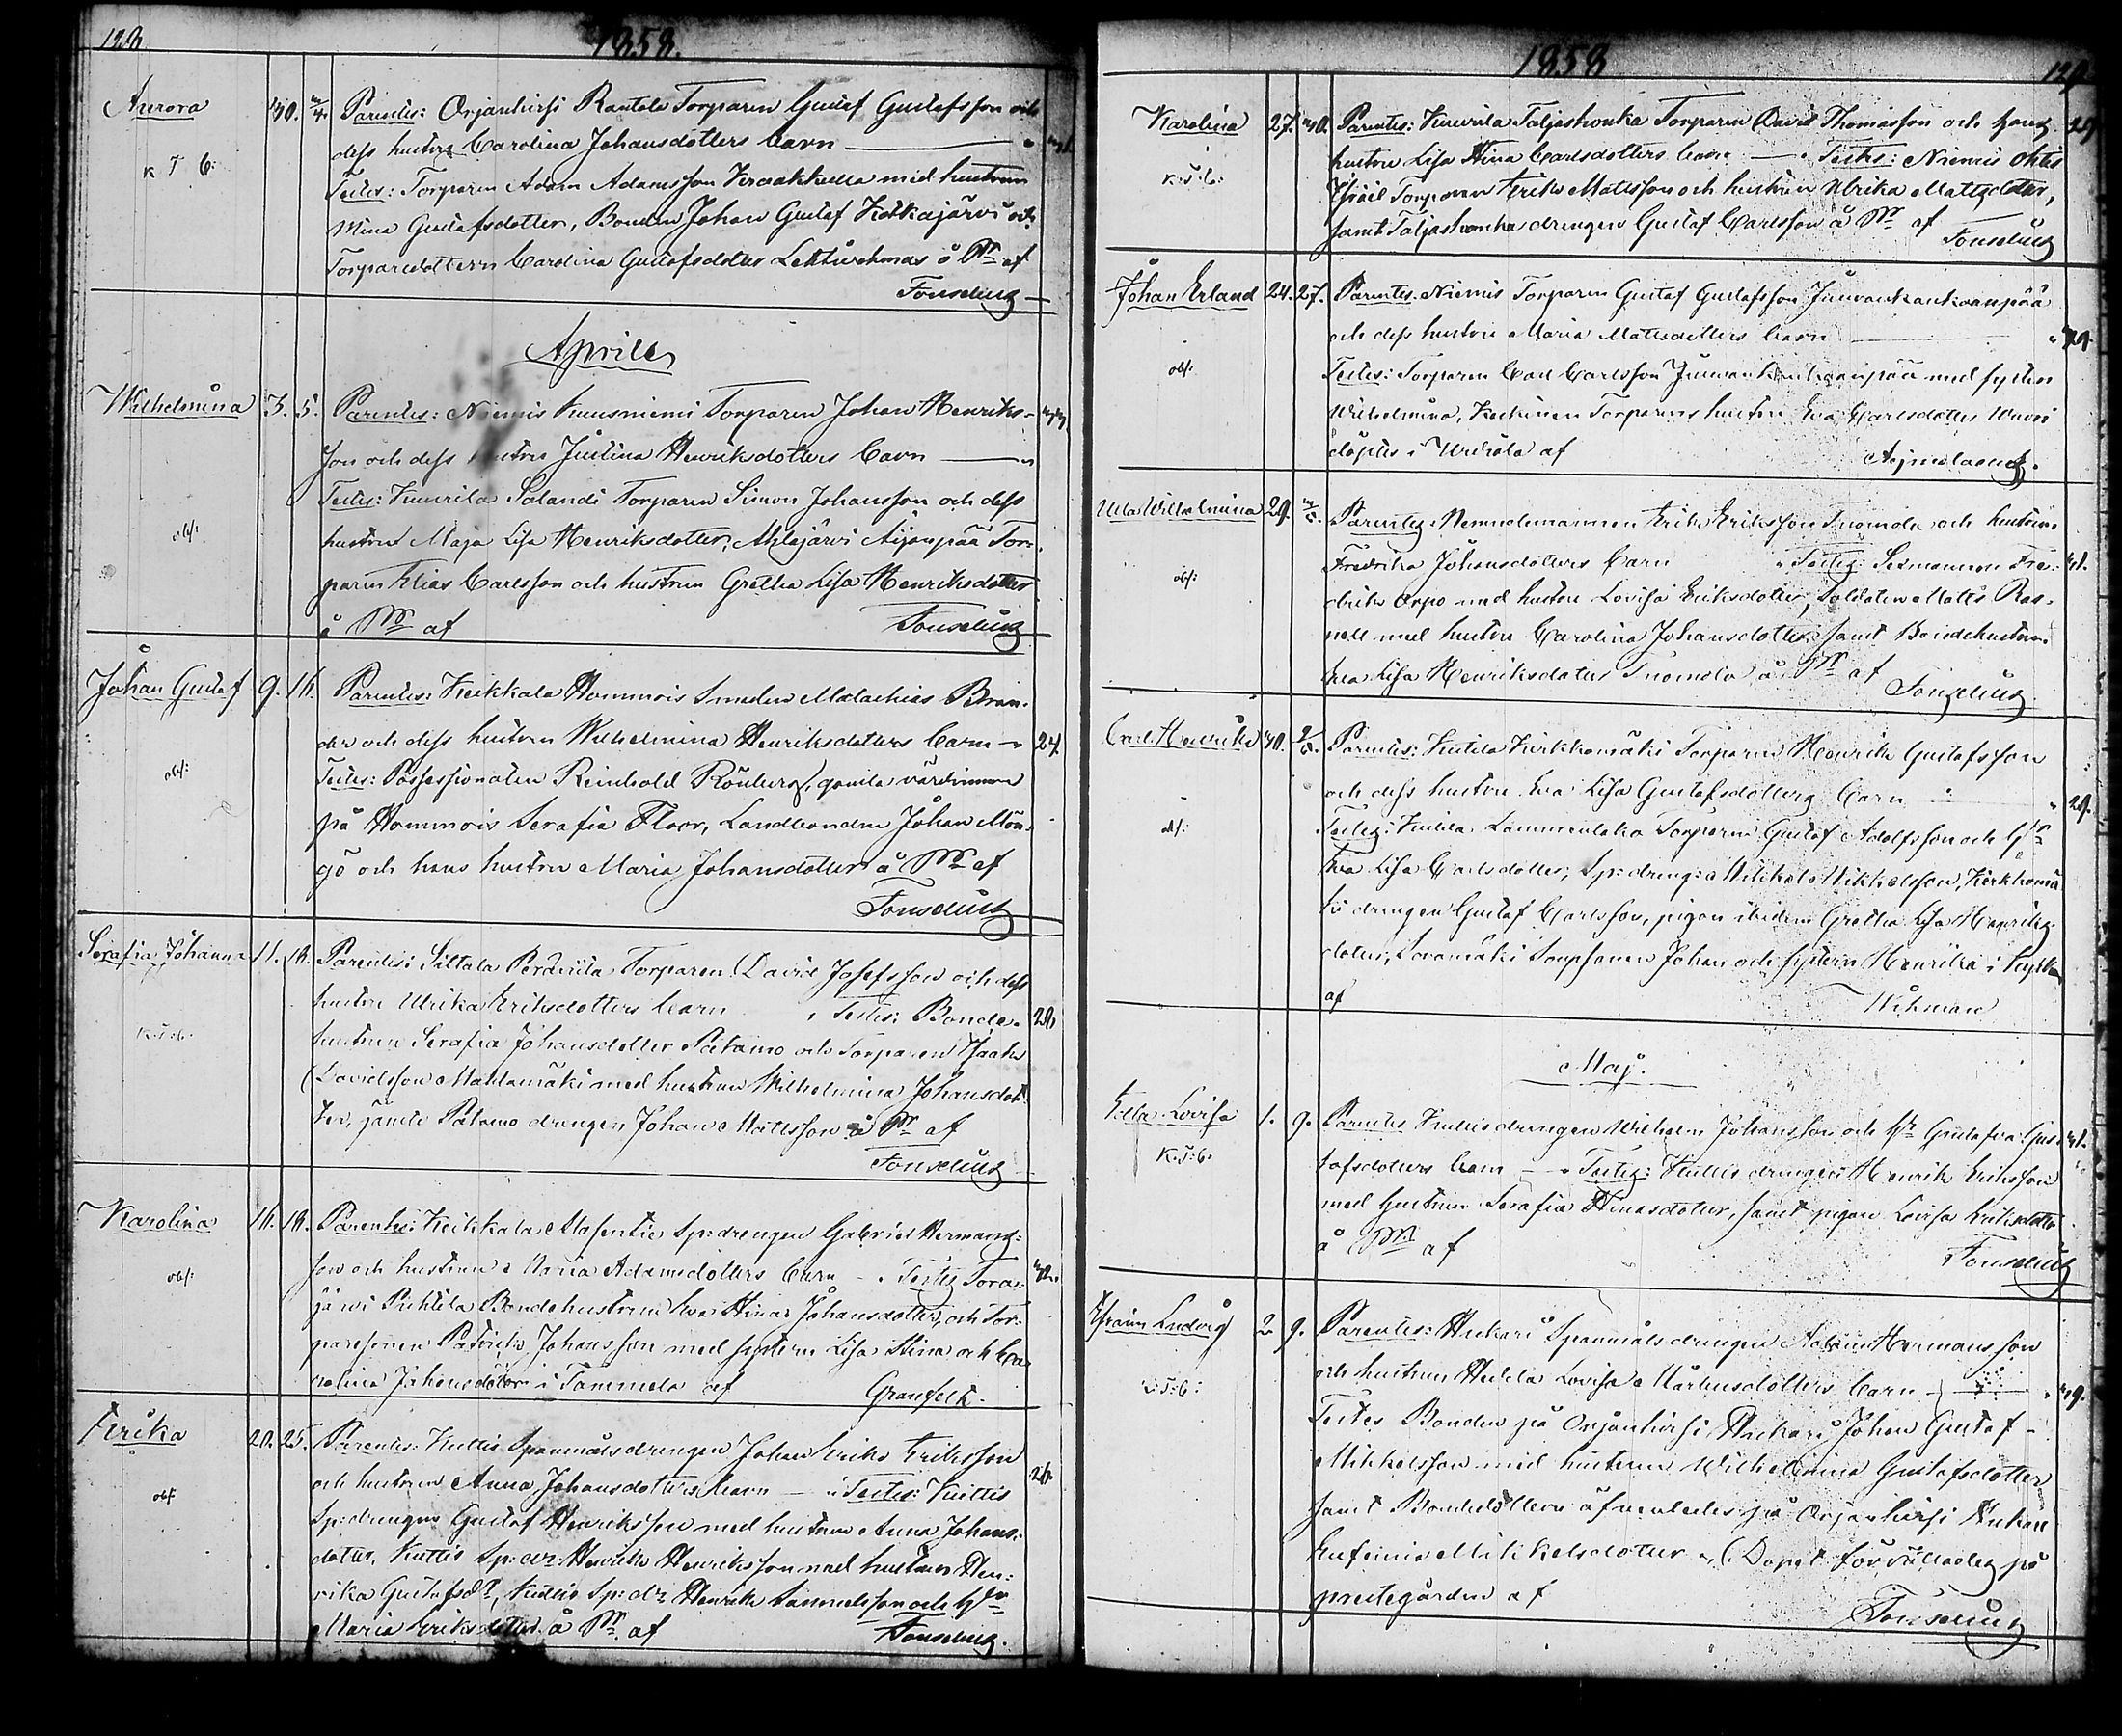 128
1858.
Aurora 30. 2/4. Parentes: Orjanhirsi Rantala Torparen Gustaf Gustafsson och
dess hustru Carolina Johansdotters barn —
K T b: Testes: Torparen Adam Adamsson Kraakkulla med hustrun
Mina Gustafsdotter, Bonden Johan Gustaf Kokkojärvi och
Torparedottern Carolina Gustafsdotter å Pr af
Fonselius
Aprill
Wilhelmina 3. 5. Parentes: Niemis Kuusniemi Torparen Johan Henriks-
son och dess hustru Justina Henriksdotters barn —
Testes: Kuurila Salandi Torparen Simon Johansson och dess
obs: hustru Maja Lisa Henriksdotter, Ahlajärvi Äijänpää Tor-
paren Elias Carlsson och hustrun Gretha Lisa Henriksdotter
å Pr af Fonselius
Johan Gustaf 9. 16. Parentes: Keikkala Hommois Smeden Malachias Bran-
der och dess hustru Wilhelmina Henriksdotters barn — 24.
obs: Testes: Possessionaten Reinhold gamla värdinnan
på Hommois Serafia Floor, Landbonden Johan Mön-
gö och hans hustru Maria Johansdotter å Pr af
Fonselius
Serafia Johanna 11. 18. Parentes: Siltala Torparen David Josefsson och dess
hustru Ulrika Eriksdotters barn Testes: Bonde- 28.
K:T:b: hustrun Serafia Johansdotter Patamo och Torparen Isaak
Davidsson Mattamäki med hustrun Wilhelmina Johansdot-
ter, jämte Patamo drengen Johan Mattsson å Pr af
Fonselius
Karolina 16. 18. Parentes: Keikkala Sp:drengen Gabriel Hermans-
obs: son och hustrun Maria Adamsdotters barn — Testes Tora-
järvi Bondehustrun Eva Stina Johansdotter, och Tor-
paresonen Johansson med systern Lisa Stina och Ca-
rolina Johansdotter i Tammela af Granfelt.
Erika 20. 25. Parentes: Kuttis Spanmålsdrengen Johan Erik Eriksson
och hustrun Anna Johansdotters barn — Testes: Kuttis 26.
obs: Sp:drengen Gustaf Henriksson med hustrun Anna Johans-
dotter, Kuttis Sp:dr: Henrik Henriksson med hustrun Hen-
rika Gustafsdr, Kuttis Sp:dr Henrik Samuelsson och hstr
Maria Eriksdotter å Pr af Fonselius.
1858
129
Karolina 27. 30. Parentes: Kuurila Taljashonka Torparen David Thomasson och hans 29
K:T:b: hustru Lisa Stina Carlsdotters barn — Testes: Niemis
Torparen Erik Mattsson och hustrun Ulrika Mattsdotter,
samt Taljashonka drengen Gustaf Carlsson å Pr af
Fonselius
Johan Erland 24. 27. Parentes. Niemis Torparen Gustaf Gustafsson Juuvankankaanpää
och dess hustru Maria Mattsdotters barn
obs: Testes: Torparen Carl Carlsson Juuvankankaanpää med system
Wilhelmina, Torparens hustru Eva Carlsdotter
döptes i Urdiala af Aejmelaeus.
Ulla Wilhelmina 29. Parentes: Nemndemannen Erik Eriksson Tuomola och hustrun
obs: Fredrika Johansdotters barn Testes: Sexmannen Fre-
drik Orpo med hustru Lovisa Eriksdotter, Soldaten Matts Ras-
mell med hustru Carolina Johansdotter samt Bondehustrun
Eva Lisa Henriksdotter Tuomola å Pr af
Fonselius
Carl Henrik 30. 2/5. Parentes: Kutila Kirkkomäki Torparen Henrik Gustafsson
och dess hustru Eva Lisa Gustafsdotters barn 29.
obs: Testes: Kutila Lammentaka Torparen Gustaf Adolfsson och hstr
Eva Lisa Carlsdotter, Sp:dreng: Mikkel Mikkelsson, Kirkkomä-
ki drengen Gustaf Carlsson, pigan ibidem Gretha Lisa Henriks-
dotter, Johan och systern Henrika i
af Wihman
Maj.
Edla Lovisa 1. 9. Parentes Kuttis drengen Wilhelm Johansson och hstr Gustafva Gus-
K:T:b. tafsdotters barn — Testes: Kuttis drengen Henrik Eriksson
med hustrun Serafia samt pigan Lovisa Eriksdotter
å Pr af Fonselius
Efraim Ludvig 2 9. Parentes: Hukari Spanmålsdrengen Adam Hermansson
och hustrun Hedda Lovisa Mårtensdotters barn —
K:T:b: Testes Bonden på Orjanhirsi Hukari Johan Gustaf
Mikkelsson med hustrun Wilhelmina Gustafsdotter
samt Bondedottern äfvenledes på Orjanhirsi Hukari
Eufemia Mikkelsdotter (Dopet förrättades på
prestegården af
Fonselius